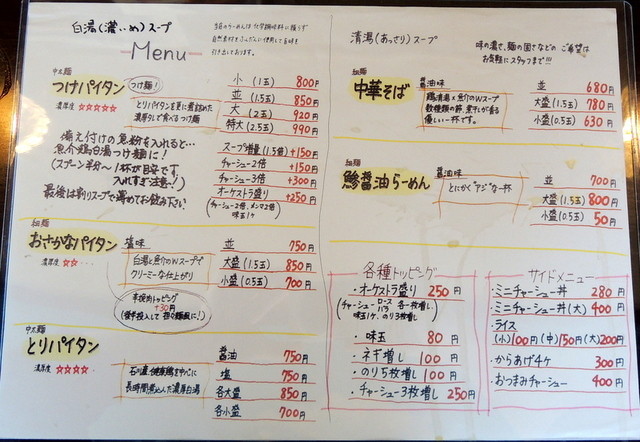 白湯(濃いめ)スープ
Menu
当店のらーめんは化学調味料に頼らず
自然素材をふんだんに使用して旨味を
引き出しております。
中太麺
つけパイタン
つけ麺!
濃厚度 ☆☆☆☆☆
とりパイタンを更に煮詰めた
濃厚ダレで食べるつけ麺
小 (1玉) 800円
並 (1.5玉) 850円
大 (2玉) 920円
特大 (2.5玉) 990円
備え付けの魚粉を入れると…
魚介鶏白湯つけ麺に!
(スプーン半分〜1杯が目安です
入れすぎ注意〜!)
最後は割りスープで薄めてお飲み下さい
スープ増量(1.5倍) +150円
チャーシュー2倍 +150円
チャーシュー3倍 +300円
オーケストラ盛り +250円
(チャーシュー2倍、メンマ2倍
味玉1ケ)
細麺
おさかなパイタン
濃厚度 ☆☆
塩味
白湯と魚介のWスープで
クリーミーな仕上がり
並 750円
大盛(1.5玉) 850円
小盛(0.5玉) 700円
辛挽肉トッピング
+30円
中太麺
とりパイタン
濃厚度 ☆☆☆☆
石川産健康鶏を中心に
長時間煮込んだ濃厚白湯
醤油 750円
塩 750円
各大盛 850円
各小盛 700円
清湯(あっさり)スープ
味の濃さ、麺の固さなどの ご希望は
お気軽にスタッフまで!!!
細麺
中華そば
醤油味
鶏清湯×魚介のWスープ
数種類の節、煮干しが香る
優しい一杯です。
並 680円
大盛(1.5玉) 780円
小盛(0.5玉) 630円
細麺
鯵醤油らーめん
醤油味
とにかく"アジ"な一杯
並 700円
大盛(1.5玉) 800円
小盛(0.5玉) 50円
各種トッピング
・オーケストラ盛り 250円
(チャーシューロース
バラ 各一枚増し
味玉1ケ、のり3枚増し)
・味玉 80円
・ネギ増し 100円
・のり5枚増し 100円
・チャーシュー3枚増し 250円
サイドメニュー
・ミニチャーシュー丼 280円
・ミニチャーシュー丼(大) 400円
・ライス
(小)100円(中)150円(大)200円
・からあげ4ケ 300円
・おつまみチャーシュー 400円